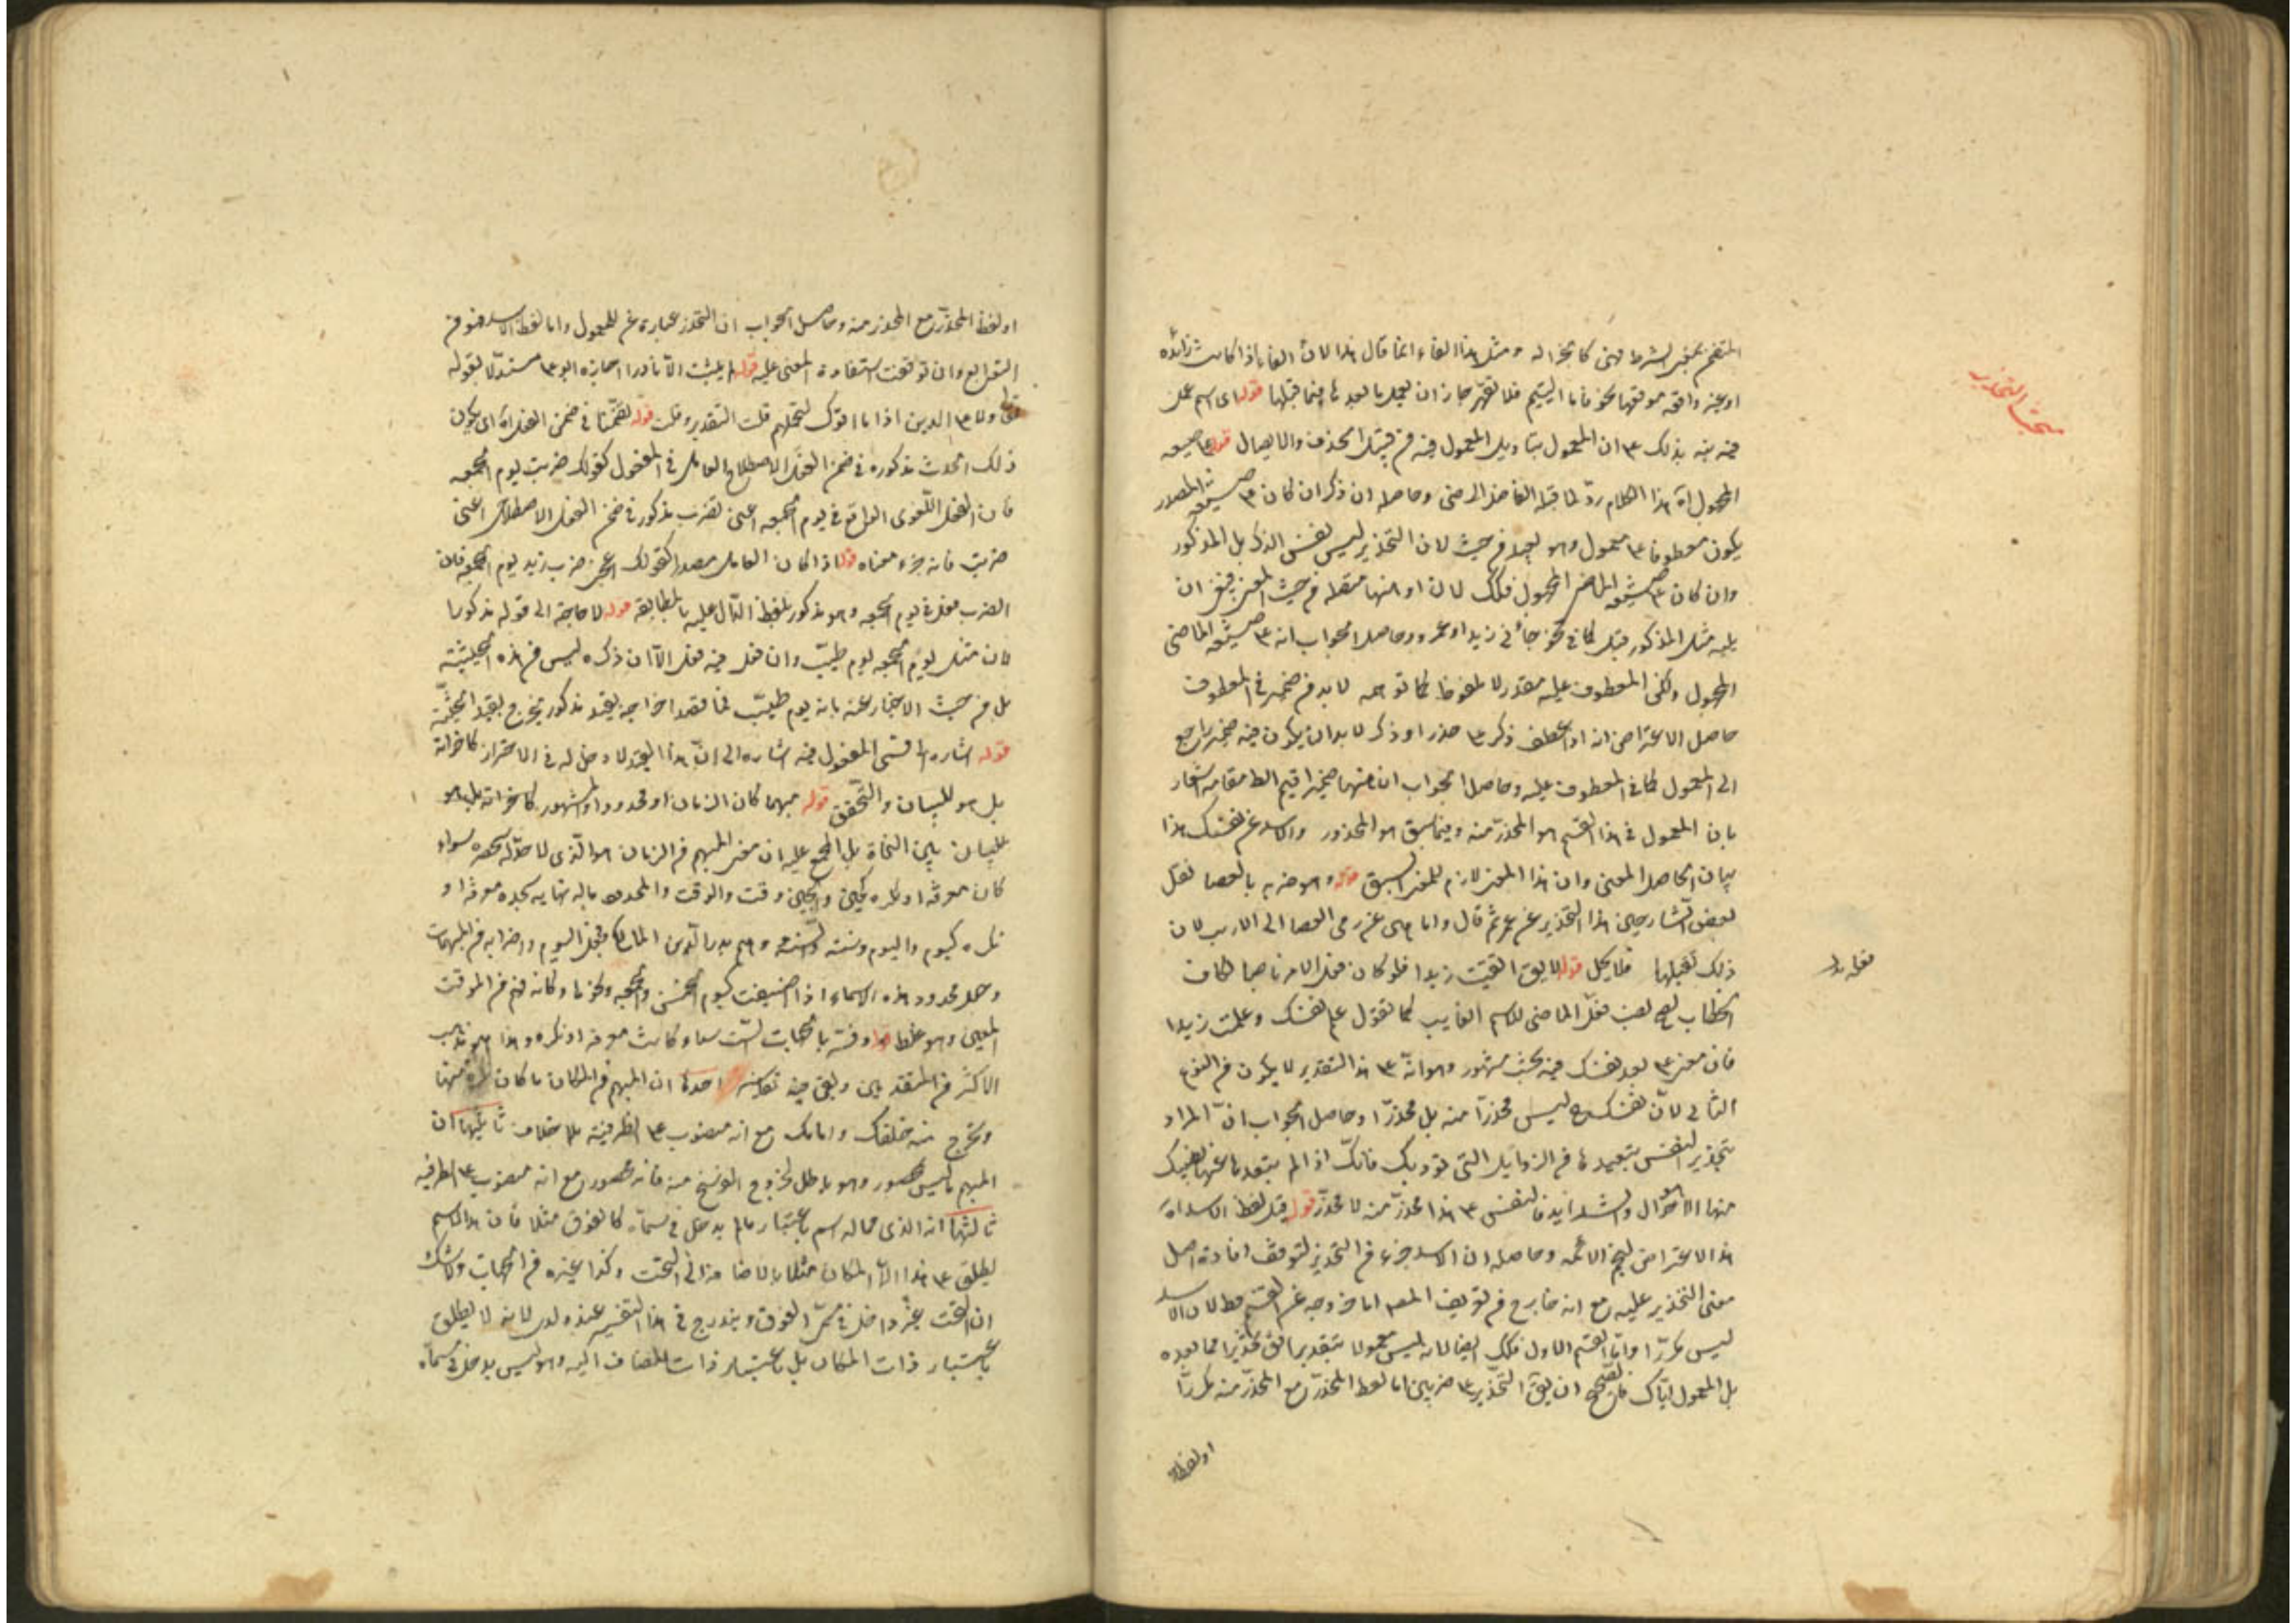 مبحث التحذير
المتضمن لمعنى الشرط فهى كالجزاء له ومثل هذا الفاء انما قال هذا لان الفاء اذا كانت زائدة
او غير واقعة موقعها نحو فاما اليتيم فلا تقهر جاز ان يعمل ما بعدها فيما قبلها قوله اى اسم عمل
فيه نبه بذلك على ان المعمول بتاويل المعمول فيه من قبيل الحذف والايصال قوله على صيغة
المجهول آه هذا الكلام رد لما قبله الفاضل الرضى وحاصله ان ذكر ان كان على صيغة المصدر
يكون معطوفا على معمول وهو بعيد من حيث لان التحذير ليس نفس الذكر بل المذكور
وان كان على صيغة الماضى المجهول فكذلك لان او منقطعة من حيث المعنى ان
يليه مثل المذكور قبل كما فى نحو جاءنى زيد او عمرو وحاصل الجواب انه على صيغة الماضى
المجهول ولكن المعطوف عليه مقدر لا ملفوظ كما توهمه لا بد من ضمير فى المعطوف
حاصل الاعتراض انه اذا عطف ذكر على حذر او ذكر لا بد ان يكون فيه ضمير راجع
الى المعمول كما فى المعطوف عليه وحاصل الجواب ان هنا ضميرا اقيم الظ مقامه اشعار
بان المعمول فى هذا القسم هو المحذر منه وفيما سبق هو المحذر والاسد عن نفسك هذا
بيان الحاصل المعنى وان هذا المعنى لازم للمعنى السبق قوله وهو ضربه بالعصا نقل
بعض الشارحين هذا التحذير عن عمر ثم قال واما نهى عن رمى العصا الى الارنب لان
ذلك يقتلها فلا يحل قوله لا يق اتقيت زيدا فلو كان فعل الامر ناصبا لكاف
الخطاب لصح نصب فعل الماضى للاسم الغايب كما تقول عن نفسك وعلمت زيدا
فان معنى على بعد نفسك فيه بحث مشهور وهو انه على هذا التقدير لا يكون من النوع
الثانى لان نفسك ح ليس محذرا منه بل محذرا وحاصل الجواب ان المراد
تحذير النفس بتبعيدها من الرذايل التى توديك فانك اذا لم تبتعد ما عنها يصيبك
منها الاهوال والشدايد فالنفس على هذا محذر منه لا محذر قوله قيل لفظ الاسد آه
هذا الاعتراض لنجم الائمة وحاصله ان الاسد جزء من التحذير لتوقف افادة اصل
معنى التحذير عليه مع انه خارج من تعريف المص اما خروجه عن القسم فظ لان الاسد
ليس مكررا واما القسم الاول فكذلك ايضا لانه ليس معمولا بتقدير اتق تحذيرا مما بعده
بل المعمول اياك فالصحيح ان يق التحذير على ضربين اما لفظ المحذر مع المحذر منه مكررا
او لفظ
او لفظ المحذر مع المحذر منه وحاصل الجواب ان التحذير عبارة عن المعمول واما لفظ الاسد فهو من
التوابع وان توقفت استفادة المعنى عليه قوله لم يثبت الا نادرا اجازه ابو على مستدلا بقوله
تعالى ولا على الذين اذا ما اتوك لتحملهم قلت التقدير وقلت قوله تضمنا فى ضمن الفعل آه اى يكون
ذلك الحدث مذكورة فى ضمن الفعل الاصطلاحى العامل فى المفعول كقولك ضربت يوم الجمعة
فان الفعل اللغوى الواقع فى يوم الجمعة اعنى الضرب مذكور فى ضمن الفعل الاصطلاحى اعنى
ضربت فانه جزء معناه قوله اذا كان العامل مصدرا كقولك اعجبنى ضرب زيد يوم الجمعة فان
الضرب فعل فى يوم الجمعة وهو مذكور بلفظ الدال عليه بالمطابقة قوله لا حاجة الى قوله مذكورا
لان مثل يوم الجمعة يوم طيب وان فعل فيه فعل الا ان ذكره ليس من هذه الحيثية
بل من حيث الاخبار عنه بانه يوم طيب فما قصد اخراجه بقيد مذكور يخرج بقيد الحيثية
قوله اشارة الى قسمى المفعول فيه اشارة الى ان هذا القيد لا دخل له فى الاحتراز كاخواته
بل هو للبيان والتحقيق قوله مبهما كان الزمان او محدودا والمشهور كاخواته بل هو
للبيان بين النحاة بل المجمع عليه ان معنى المبهم من الزمان هو الذى لا حد له يحصره سواء
كان معرفة او نكرة كحين والحين وقت والوقت والمحدود ما له نهاية تحده معرفة او
نكرة كيوم واليوم وسنة والسنة
وجعل محدود هذه الاسماء اذا اضيفت كيوم الخميس والجمعة ونحوها وكانه فهم من الموقت
المعين وهو غلط قوله وفسر بالجهات الست سواء كانت معرفة او نكرة وهذا هو مذهب
الاكثر من المتقدمين وبقى فيه تفاسير احدها ان المبهم من المكان ما كان نكرة
ويخرج منه خلفك وامامك مع انه منصوب على الظرفية بلا خلاف ثانيها ان
المبهم ما ليس بمحصور وهو باطل لخروج الفرسخ منه فانه محصور مع انه منصوب على الظرفية
ثالثها انه الذى مما له اسم باعتبار ما لم يدخل فى مسماه كالفوق مثلا فان هذا الاسم
يطلق على هذا المكان مثلا بالاضافة الى التحت وكذا غيره من الجهات ولا شك
ان التحت غير داخل فى مسمى الفوق ويندرج فى هذا التفسير عند ولدى لانه لا يطلق
باعتبار ذات المكان بل باعتبار ذات المضاف اليه وهو ليس بداخل فى مسماه